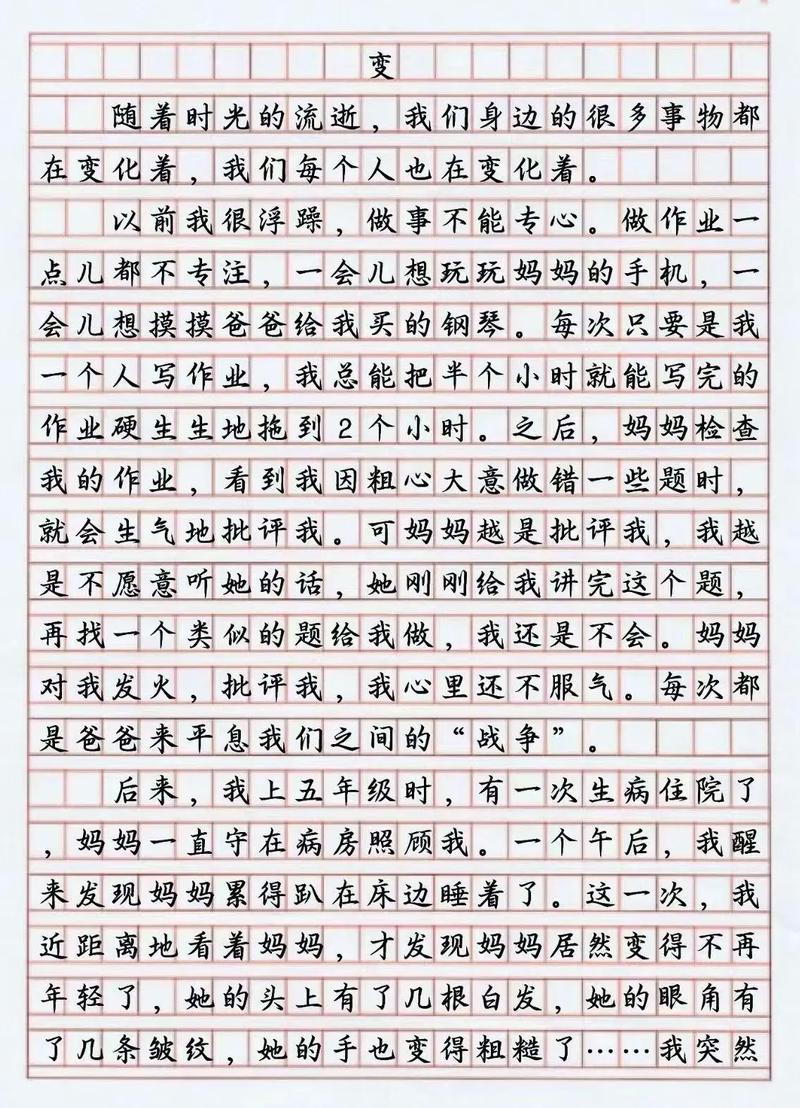 变
随着时光的流逝，我们身边的很多事物都
在变化着，我们每个人也在变化着。
以前我很浮躁，做事不能专心。做作业一
点儿都不专注，一会儿想玩玩妈妈的手机，一
会儿想摸摸爸爸给我买的钢琴。每次只要是我
一个人写作业，我总能把半个小时就能写完的
作业硬生生地拖到2个小时。之后，妈妈检查
我的作业，看到我因粗心大意做错一些题时，
就会生气地批评我。可妈妈越是批评我，我越
是不愿意听她的话，她刚刚给我讲完这个题，
再找一个类似的题给我做，我还是不会。妈妈
对我发火，批评我，我心里还不服气。每次都
是爸爸来平息我们之间的“战争”。
后来，我上五年级时，有一次生病住院了
，妈妈一直守在病房照顾我。一个午后，我醒
来发现妈妈累得趴在床边睡着了。这一次，我
近距离地看着妈妈，才发现妈妈居然变得不再
年轻了，她的头上有了几根白发，她的眼角有
了几条皱纹，她的手也变得粗糙了……我突然